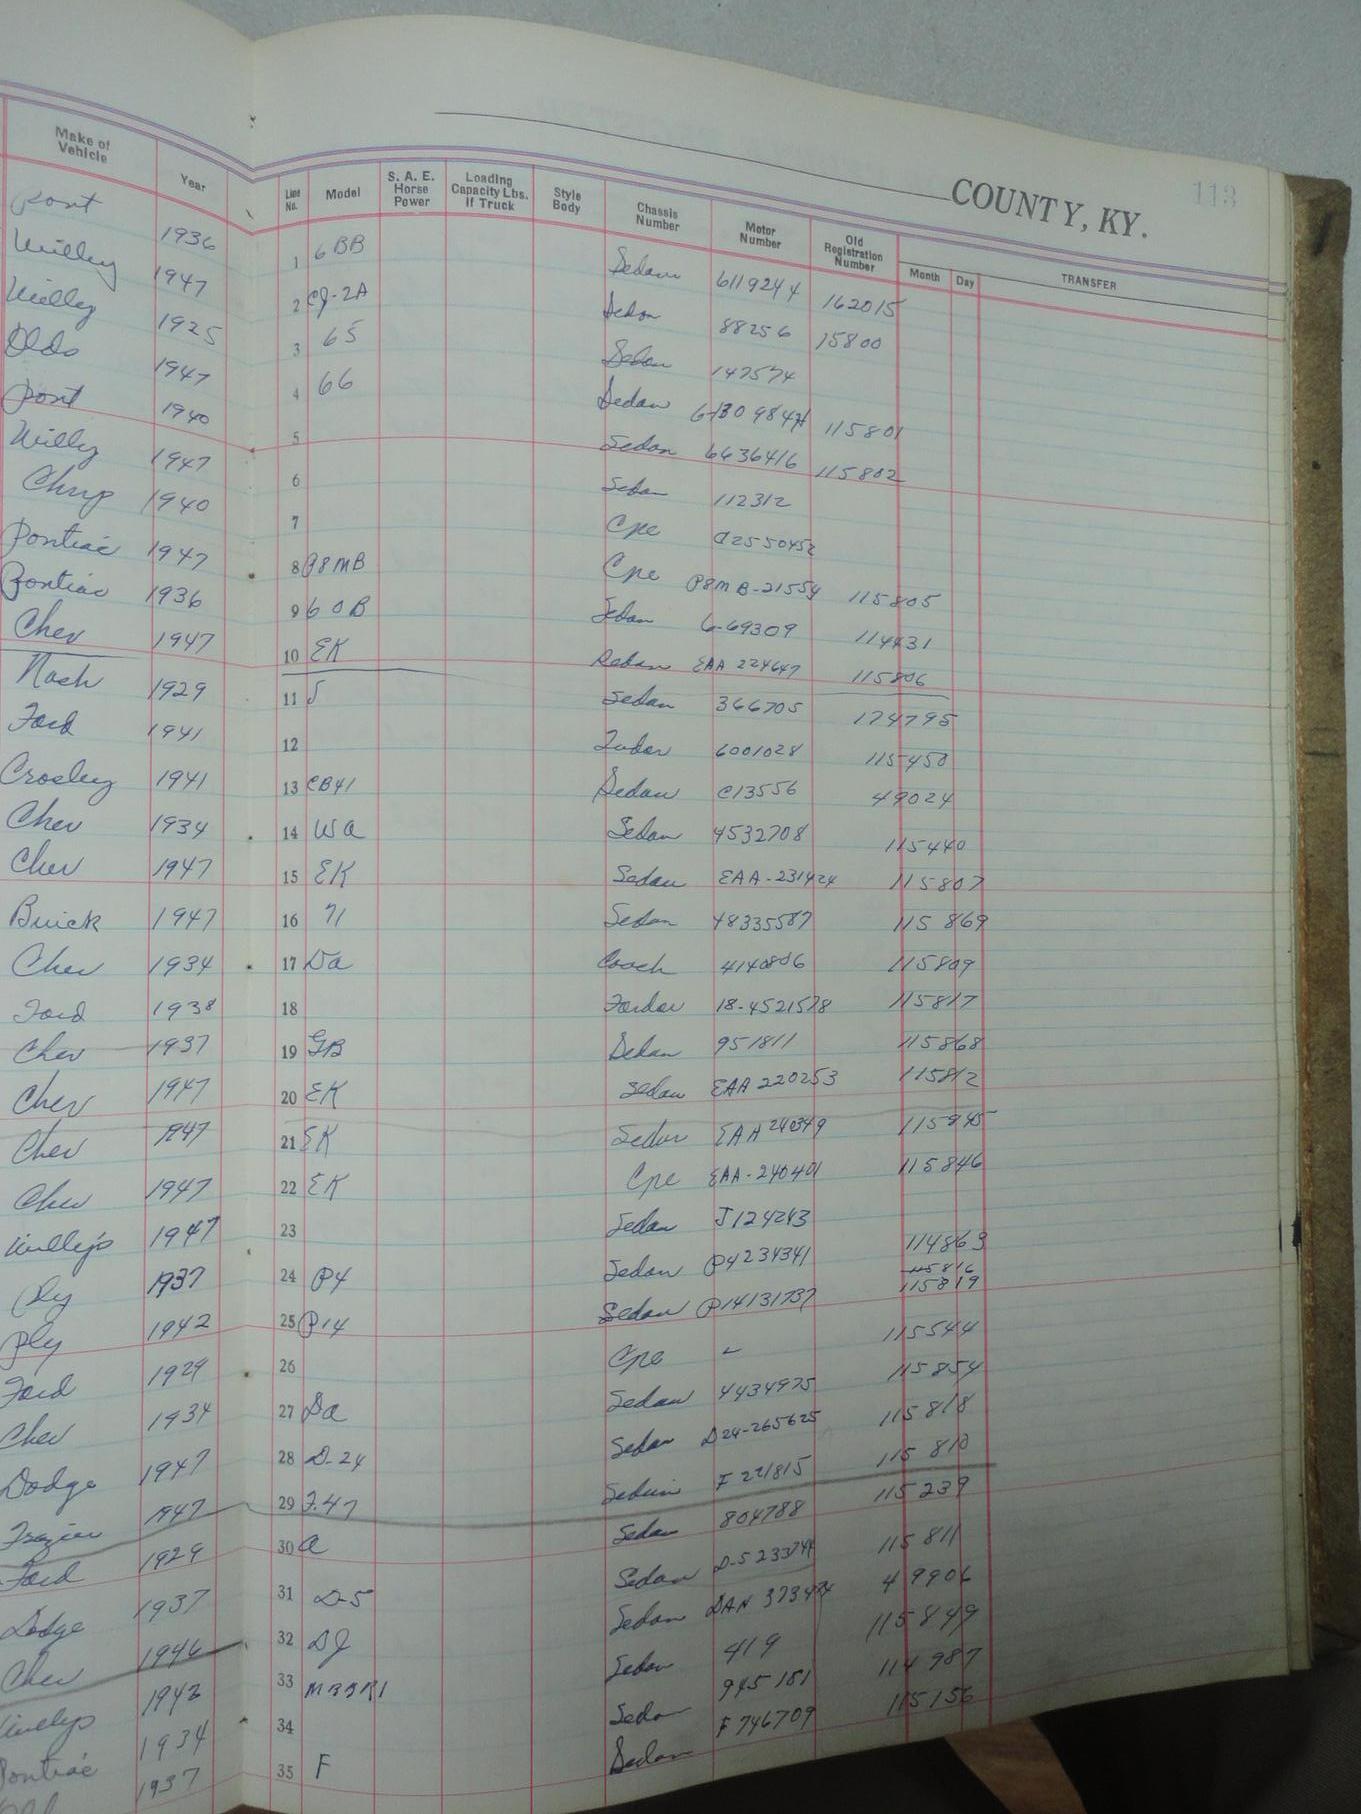 COUNTY, KY. 113
Make of Vehicle Year Line No. Model S. A. E. Horse Power Loading Capacity Lbs. If Truck Style Body Chassis Number Motor Number Old Registration Number Month Day TRANSFER
Pont 1936 1 6BB Sedan 6119244 162015
Willey 1947 2 CJ-2A Sedan 88256 15800
Willey 1925 3 65 Sedan 147574
Olds 1947 4 66 Sedan 115801
Pont 1940 5 Sedan 6636416 115802
Willy 1947 6 Sedan 112312
Chryp 1940 7 Cpe C2550452
Pontiac 1947 8 P8MB Cpe P8MB-21554 115805
Pontiac 1936 9 60B Sedan 6-69309 114431
Chev 1947 10 EK Sedan EAA 224647 115806
Nash 1929 11 Sedan 366705 174795
Ford 1941 12 Tudor 6001028 115450
Crosley 1941 13 CB41 Sedan C13556 49024
Chev 1934 14 Wa Sedan 4532708 115440
Chev 1947 15 EK Sedan EAA-231424 115807
Buick 1947 16 71 Sedan 48335587 115869
Chev 1934 17 Da Coach 4140806 115809
Ford 1938 18 Fordor 18-4521578 115817
Chev 1937 19 GB Sedan 951811 115868
Chev 1947 20 EK Sedan EAA 220253 115812
Chev 1947 21 EK Sedan EAA 240349 115945
Chev 1947 22 EK Cpe EAA-240401 115846
Willeys 1947 23 Sedan J124243
Ply 1937 24 P4 Sedan P4234341 114863
115816
Ply 1942 25 P14 Sedan P14131737 115819
Ford 1929 26 Cpe - 115544
Chev 1934 27 Da Sedan 4434975 115854
Dodge 1947 28 D-24 Sedan D24-265625 115818
Frazier 1947 29 F.47 Sedan F 221815 115810
Ford 1929 30 a Sedan 804788 115239
Dodge 1937 31 D-5 Sedan 115811
Chev 1946 32 DJ Sedan 49906
Willys 1942 33 Sedan 419 115849
Pontiac 1934 34 Sedan 945181 114987
1937 35 F Sedan F 746709 115156